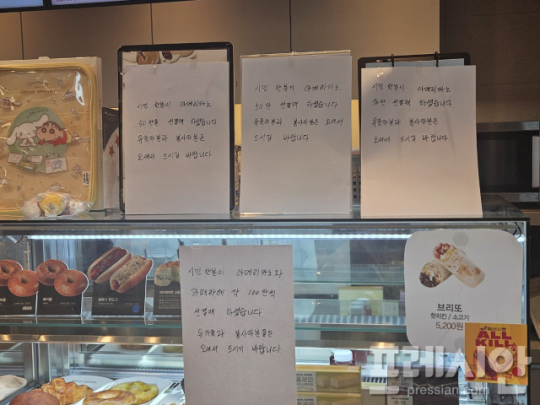 시민 한분이 아메리카노
50잔을 선결제 하셨습니다
유족분과 봉사자분은
오셔서 드시길 바랍니다
시민 한분이 아메리카노
50잔 선결제 하셨습니다
유족분과 봉사자분은 오셔서
드시길 바랍니다
시민 한분이 아메리카노
50잔 선결제 하셨습니다
유족분과 봉사자분은
오셔서 드시길 바랍니다
시민 한분이 아메리카노와
카페라떼 각 100잔씩
선결제 하셨습니다
유가족과 봉사자분들은
오셔서 드시기 바랍니다
브리또
핫치킨 / 소고기
5,200원
ALL
KILL
프레시안
pressian.com